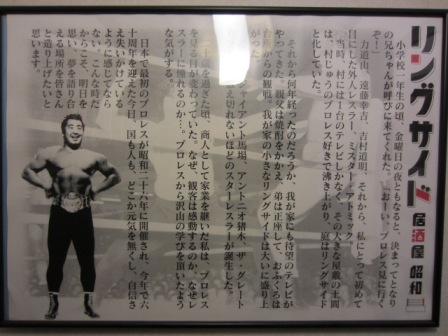 リングサイド
居酒屋 昭和
小学校一年生の頃、金曜日の夜ともなると、決まってとなり
の兄ちゃんが呼びに来てくれた。「おーい、プロレス見に行く
ぞ！」
力道山、遠藤幸吉、吉村道明、それから、私にとって初めて
目にした外人レスラー、ミスター・アトミック
当時、村には1台のテレビしかなく、その大きな屋敷の土間
は、村じゅうのプロレス好きで沸き上がり、庭はリングサイド
と化していた。
それから何年経ったのだろうか、我が家にも待望のテレビが
やってきた。親父は焼酎をかかえ、弟は正座して、おふくろは
台所からの観戦。我が家の小さなリングサイドは大いに盛り上
がった
ジャイアント馬場、アントニオ猪木、ザ・グレート
え切れないほどのスターレスラーが誕生した。
十歳を過ぎた頃、商人として家業を継いだ私は、プロレス
を見る目が変わっていた。なぜ、観客は感動するのか、なぜレ
スラーに憧れるのか…、プロレスから沢山の学びを頂いたよう
な気がする。
日本で最初のプロレスが昭和二十六年に開催され、今年で六
十周年を迎えた今日、国も人も、どこか元気を無くし、自信さ
え失いかけている
ように感じてなら
ない。こんな時だ
からこそ、明日を
思い、夢を語り合
える場所を皆さん
と造り上げたいと
思います。